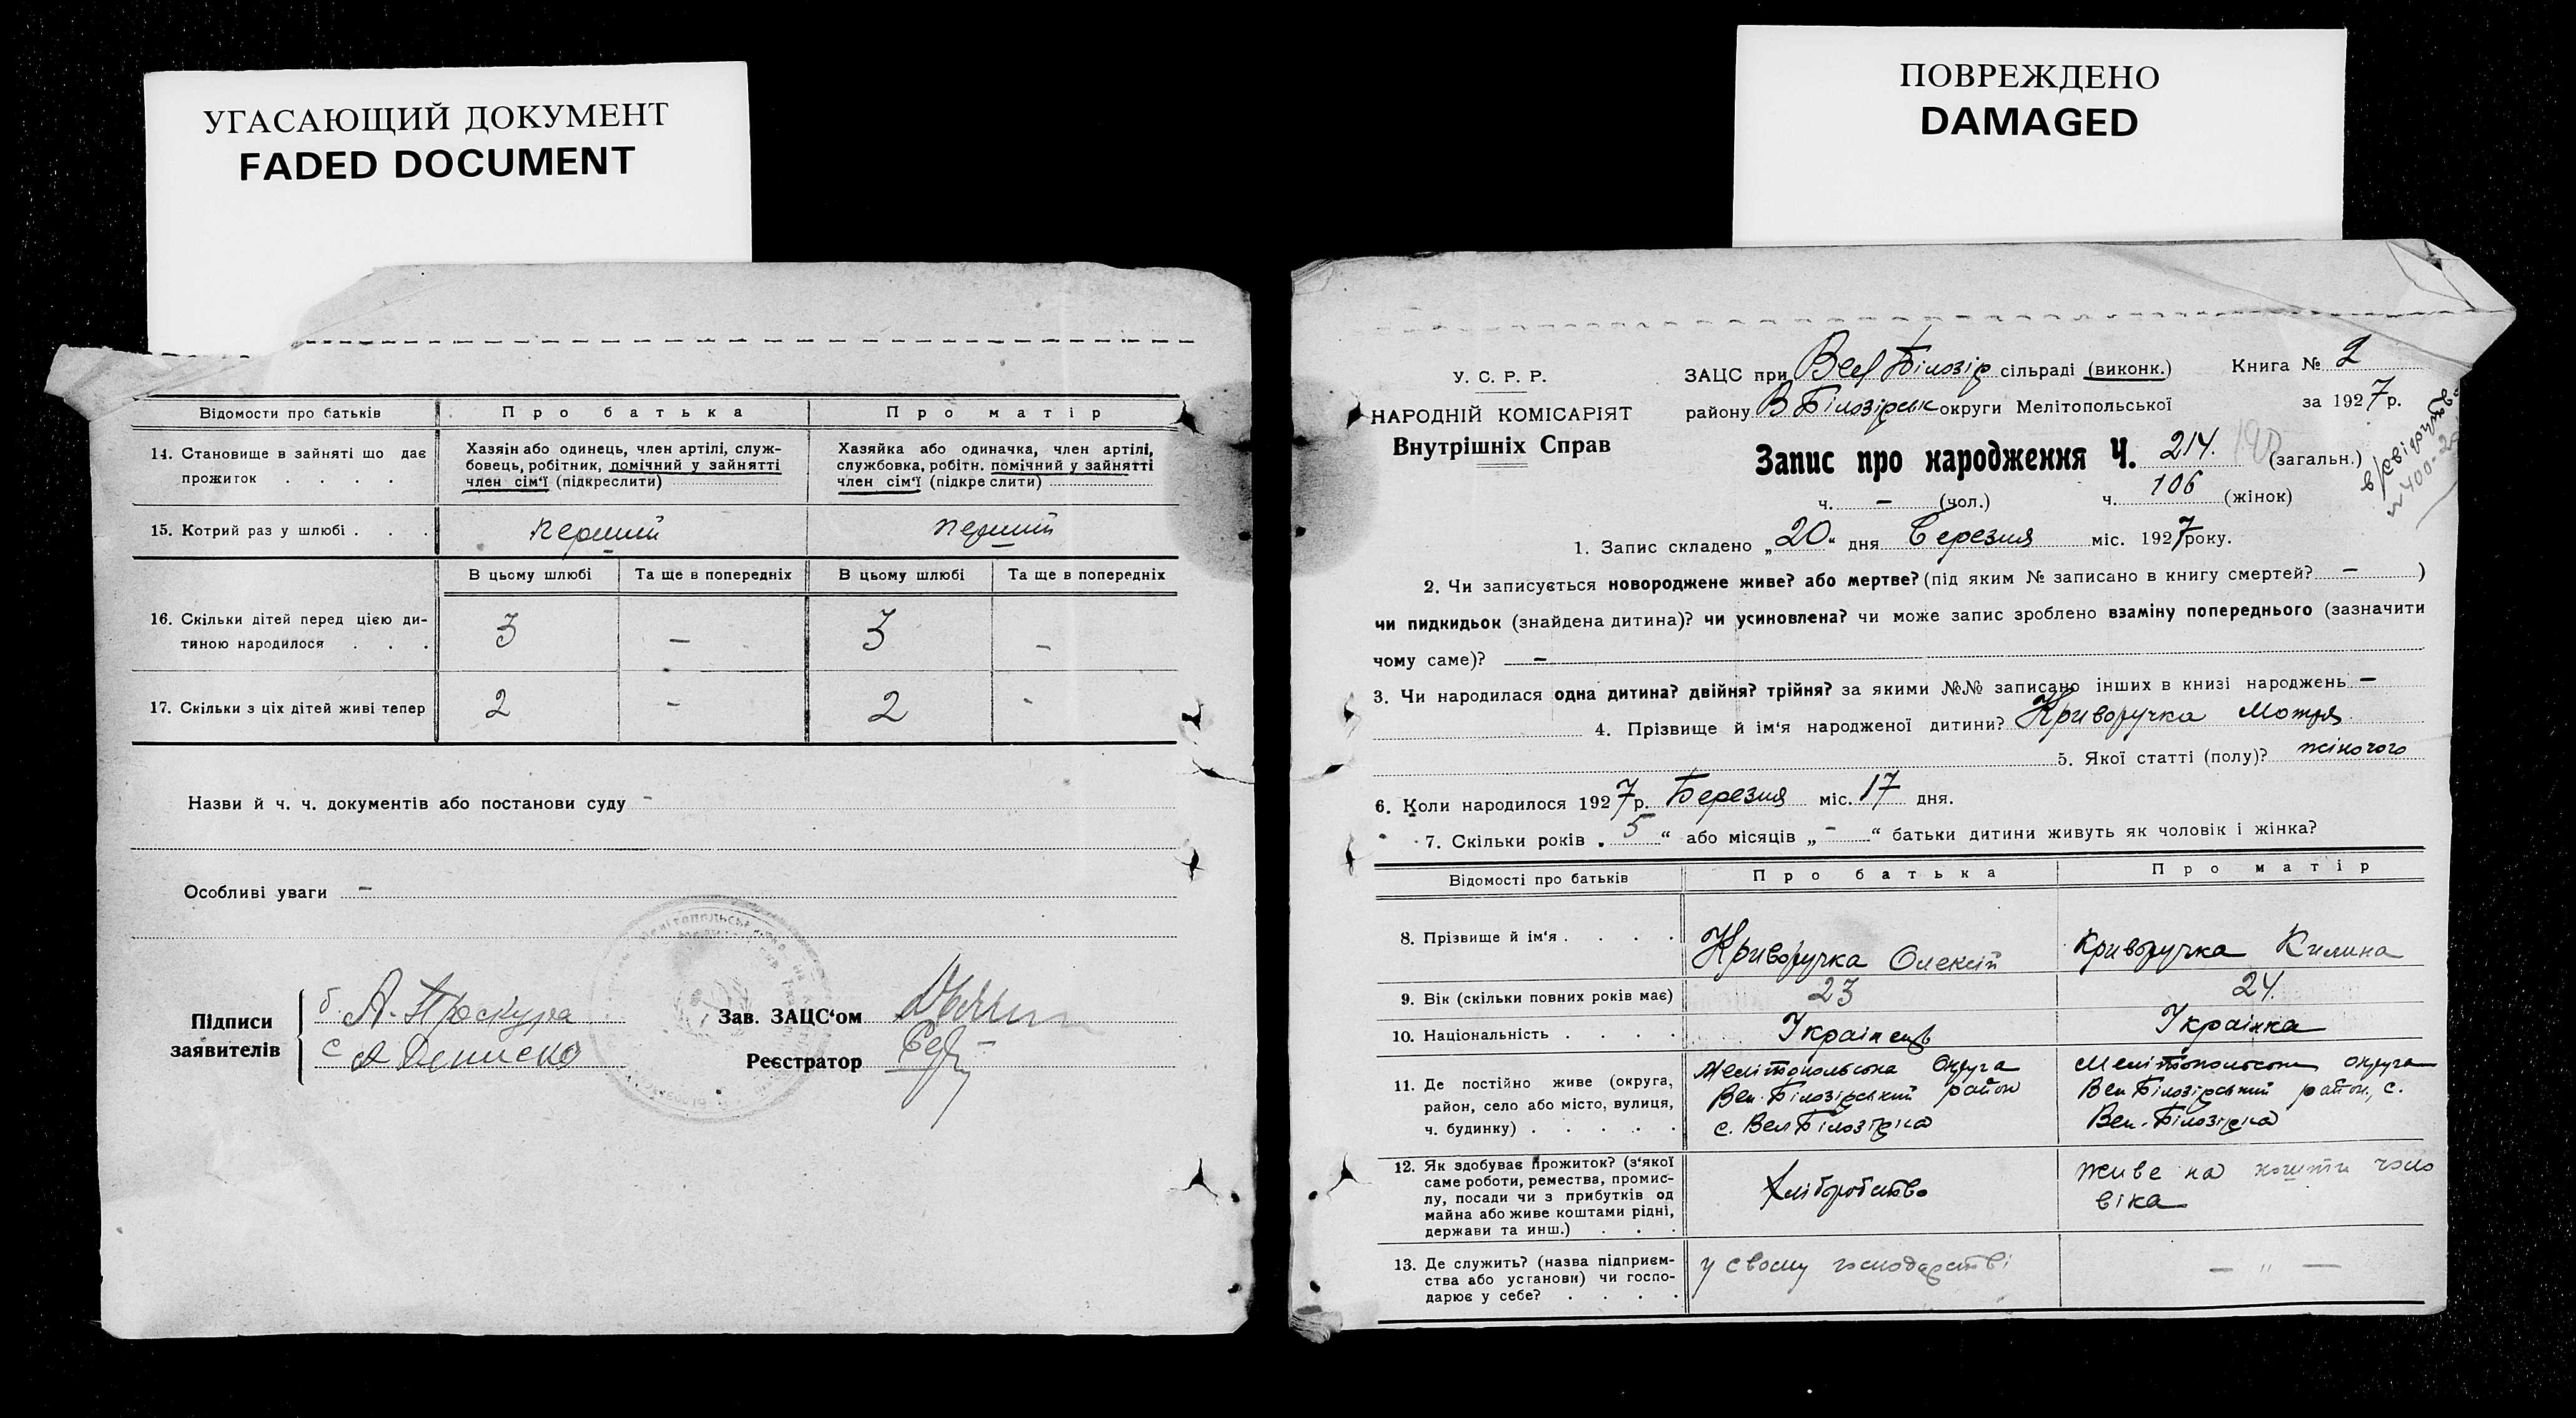 УГАСАЮЩИЙ ДОКУМЕНТ
FADED DOCUMENT
Відомости про батьків Про батька Про матір
14. Становище в зайняті що дає прожиток . . . .
Хазяін або одинець, член артілі, служ-
бовець, робітник, помічний у зайнятті
член сім'ї (підкреслити)
Хазяйка або одиначка, член артілі,
службовка, робітн. помічний у зайнятті
член сім'ї (підкреслити)
15. Котрий раз у шлюбі . . . перший перший
В цьому шлюбі Та ще в попередніх В цьому шлюбі Та ще в попередніх
16. Скільки дітей перед цією ди-
тиною народилося . . . 3 – 3 –
17. Скільки з ціх дітей живі тепер 2 – 2 -
Назви й ч. ч. документів або постанови суду -
Особливі уваги –
Підписи
заявителів
б. А. Проскура
с А Дениско
Зав. ЗАЦС'ом
Реєстратор
ПОВРЕЖДЕНО
DAMAGED
У. С. Р. Р.
НАРОДНІЙ КОМІСАРІЯТ
Внутрішніх Справ
ЗАЦС при Вел Білозір сільраді (виконк.) Книга № 2
району В Білозірськ округи Мелітопольської за 1927 р.
Запис про народження Ч. 214. (загальн.)
ч. – (чол.) ч. 106 (жінок)
1. Запис складено „20“ дня Березня міс. 1927 року.
2. Чи записується новороджене живе? або мертве? (під яким № записано в книгу смертей? – )
чи пидкидьок (знайдена дитина)? чи усиновлена? чи може запис зроблено взаміну попереднього (зазначити
чому саме)? –
3. Чи народилася одна дитина? двійня? трійня? за якими №№ записано інших в книзі народжень –
4. Прізвище й ім'я народженої дитини? Криворучка Мотря
5. Якої статті (полу)? жіночого
6. Коли народилося 1927 р. Березня міс. 17 дня.
7. Скільки років „5“ або місяців „-“ батьки дитини живуть як чоловік і жінка?
Відомості про батьків Про батька Про матір
8. Прізвище й ім'я . . . . Криворучка Олексій Криворучка Килина
9. Вік (скільки повних років має) 23 24.
10. Національність . . . . Українець Українка
11. Де постійно живе (округа,
район, село або місто, вулиця,
ч. будинку) . . . . .
Мелітопольська Округа
Вел. Білозірський район
с. Вел Білозірка
Мелітопольська округа
Вел Білозірський район, с.
Вел. Білозірка
12. Як здобуває прожиток? (з'якої
саме роботи, ремества, промис-
лу, посади чи з прибутків од
майна або живе коштами рідні,
держави та инш.) . . .
Хліборобство
живе на кошти чоло
віка
13. Де служить? (назва підприєм-
ства або установи) чи госпо-
дарює у себе? . . . .
у своєму господарстві
— " —